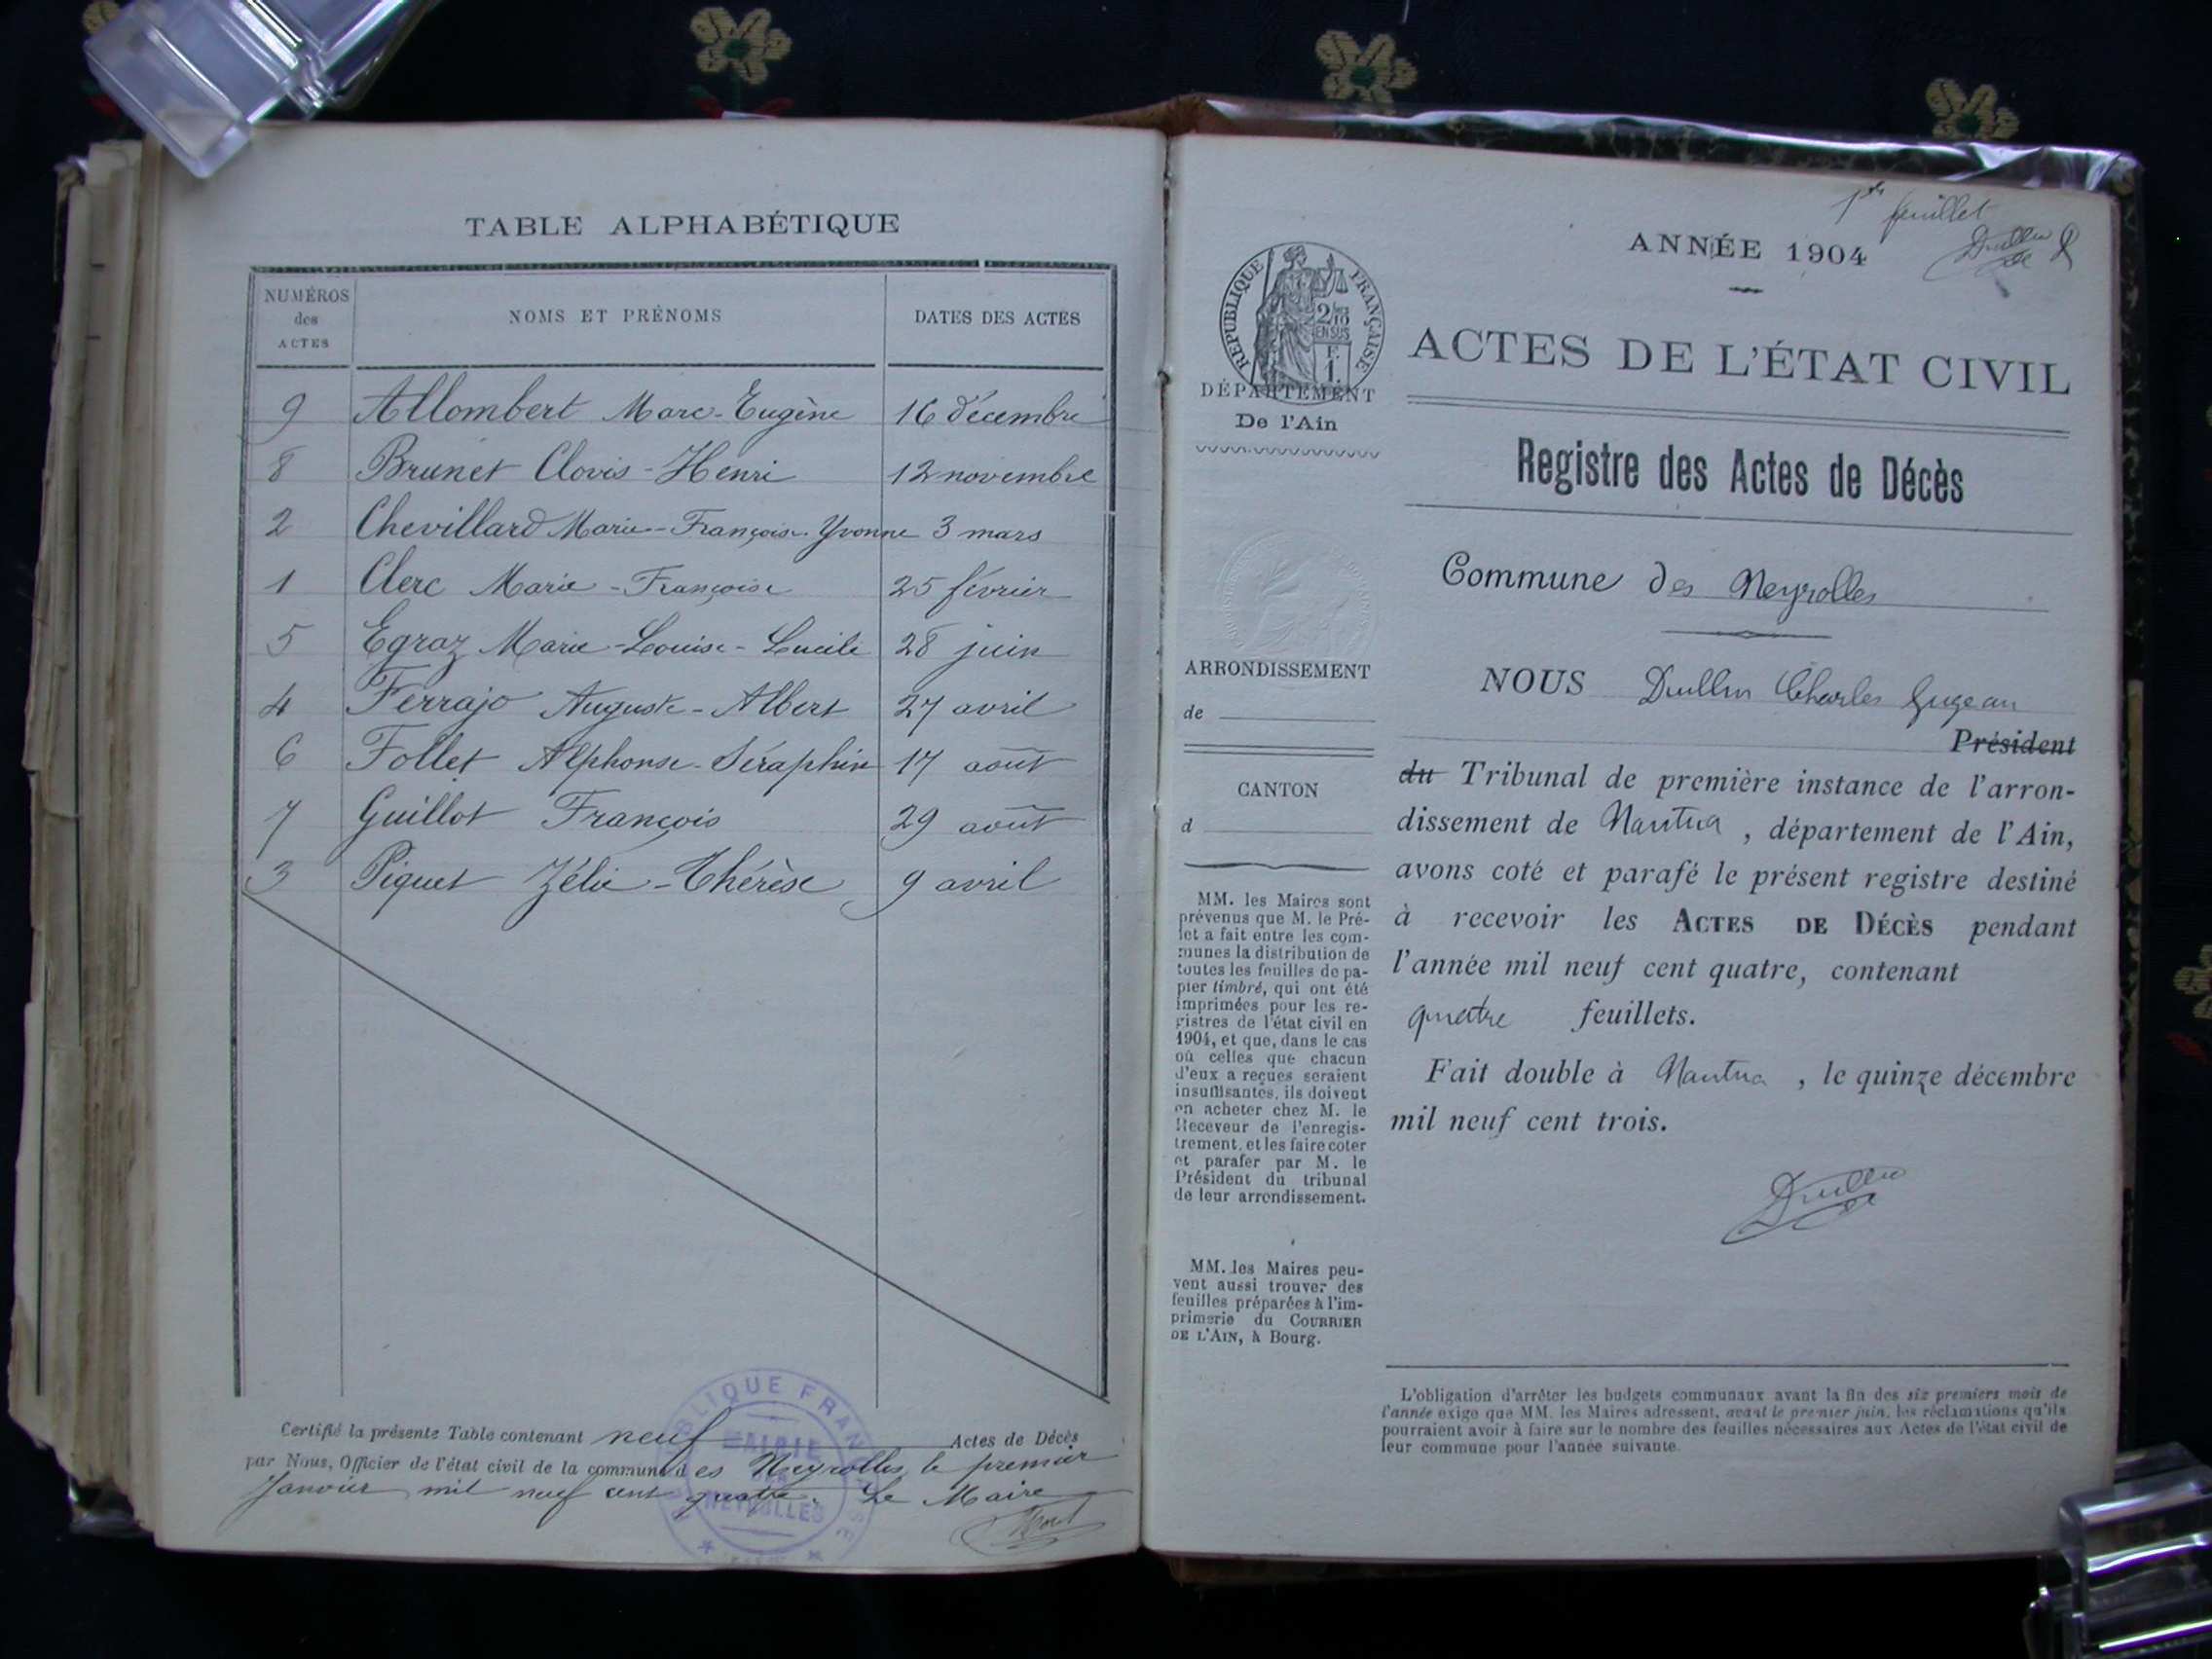 TABLE ALPHABÉTIQUE
NUMÉROS
des
ACTES
NOMS ET PRÉNOMS
DATES DES ACTES
9 Allombert Marc-Eugène 16 décembre
8 Brunet Clovis-Henri 12 novembre
2 Chevillard Marie-Françoise-Yvonne 3 mars
1 Clerc Marie-Françoise 25 février
5 Egraz Marie-Louise-Lucile 28 juin
4 Ferrajo Auguste-Albert 27 avril
6 Follet Alphonse-Séraphin 17 août
7 Guillot François 29 août
3 Piquet Zélie-Thérèse 9 avril
Certifié la présente Table contenant neuf Actes de Décès
par Nous, Officier de l'état civil de la commune des Neyrolles, le premier
Janvier mil neuf cent quatre. Le Maire
MAIRIE
NEYROLLES
1er feuillet
ANNÉE 1904
RÉPUBLIQUE FRANÇAISE
2/10
EN SUS
F.
1
DÉPARTEMENT
De l'Ain
ARRONDISSEMENT
de
CANTON
d
MM. les Maires sont
prévenus que M. le Pré-
fet a fait entre les com-
munes la distribution de
toutes les feuilles de pa-
pier timbré, qui ont été
imprimées pour les re-
gistres de l'état civil en
1904, et que, dans le cas
où celles que chacun
d'eux a reçues seraient
insuffisantes, ils doivent
en acheter chez M. le
Receveur de l'enregis-
trement, et les faire coter
et parafer par M. le
Président du tribunal
de leur arrondissement.
MM. les Maires peu-
vent aussi trouver des
feuilles préparées à l'im-
primerie du COURRIER
DE L'AIN, à Bourg.
ACTES DE L'ÉTAT CIVIL
Registre des Actes de Décès
Commune des Neyrolles
NOUS Dullin Charles
Président
du Tribunal de première instance de l'arron-
dissement de Nantua, département de l'Ain,
avons coté et parafé le présent registre destiné
à recevoir les ACTES DE DÉCÈS pendant
l'année mil neuf cent quatre, contenant
quatre feuillets.
Fait double à Nantua, le quinze décembre
mil neuf cent trois.
L'obligation d'arrêter les budgets communaux avant la fin des six premiers mois de
l'année exige que MM. les Maires adressent, avant le premier juin, les réclamations qu'ils
pourraient avoir à faire sur le nombre des feuilles nécessaires aux Actes de l'état civil de
leur commune pour l'année suivante.